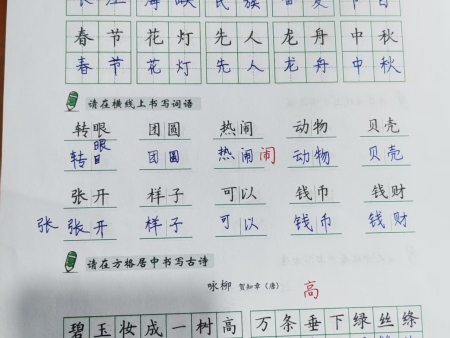 长江 海峡 民族 春夏 节日
春节 花灯 先人 龙舟 中秋
春节 花灯 先人 龙舟 中秋
请在横线上书写词语
转眼 团圆 热闹 动物 贝壳
眼
转 团圆 热闹 闹 动物 贝壳
张开 样子 可以 钱币 钱财
张 张开 样子 可以 钱币 钱财
请在方格居中书写古诗
咏柳 贺知章(唐) 高
碧玉妆成一树高 万条垂下绿丝绦